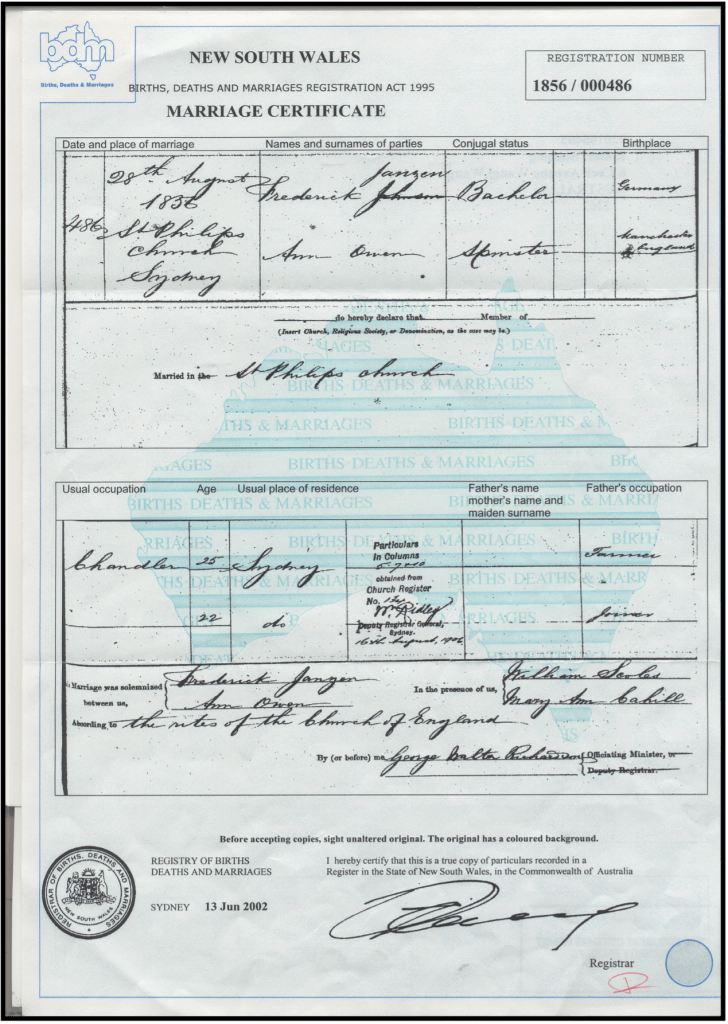 bdm
Births, Deaths & Marriages
NEW SOUTH WALES
BIRTHS, DEATHS AND MARRIAGES REGISTRATION ACT 1995
MARRIAGE CERTIFICATE
REGISTRATION NUMBER
1856 / 000486
Date and place of marriage Names and surnames of parties Conjugal status Birthplace
Janzen
28th August Frederick Johnson Bachelor Germany
1856
486 St Philips Manchester
Church Ann Owen Spinster England
Sydney
do hereby declare that Member of
(Insert Church, Religious Society, or Denomination, as the case may be.)
Married in the St Philips Church
Usual occupation Age Usual place of residence Father's name Father's occupation
mother's name and
maiden surname
Chandler 25 Sydney Farmer
22 do Joiner
Particulars
in Columns
5 7 & 10
obtained from
Church Register
No.
Wm Ridley
Deputy Registrar General,
Sydney.
16th August, 1906
Marriage was solemnized Frederick Janzen In the presence of us, William Scoles
between us, Ann Owen Mary Ann Cahill
According to the rites of the Church of England
By (or before) me George Walter Richardson Officiating Minister, or
Deputy Registrar.
Before accepting copies, sight unaltered original. The original has a coloured background.
REGISTRY OF BIRTHS
DEATHS AND MARRIAGES
I hereby certify that this is a true copy of particulars recorded in a
Register in the State of New South Wales, in the Commonwealth of Australia
SYDNEY 13 Jun 2002
REGISTRAR OF BIRTHS, DEATHS AND MARRIAGES
NEW SOUTH WALES
Registrar
BIRTHS DEATHS & MARRIAGES